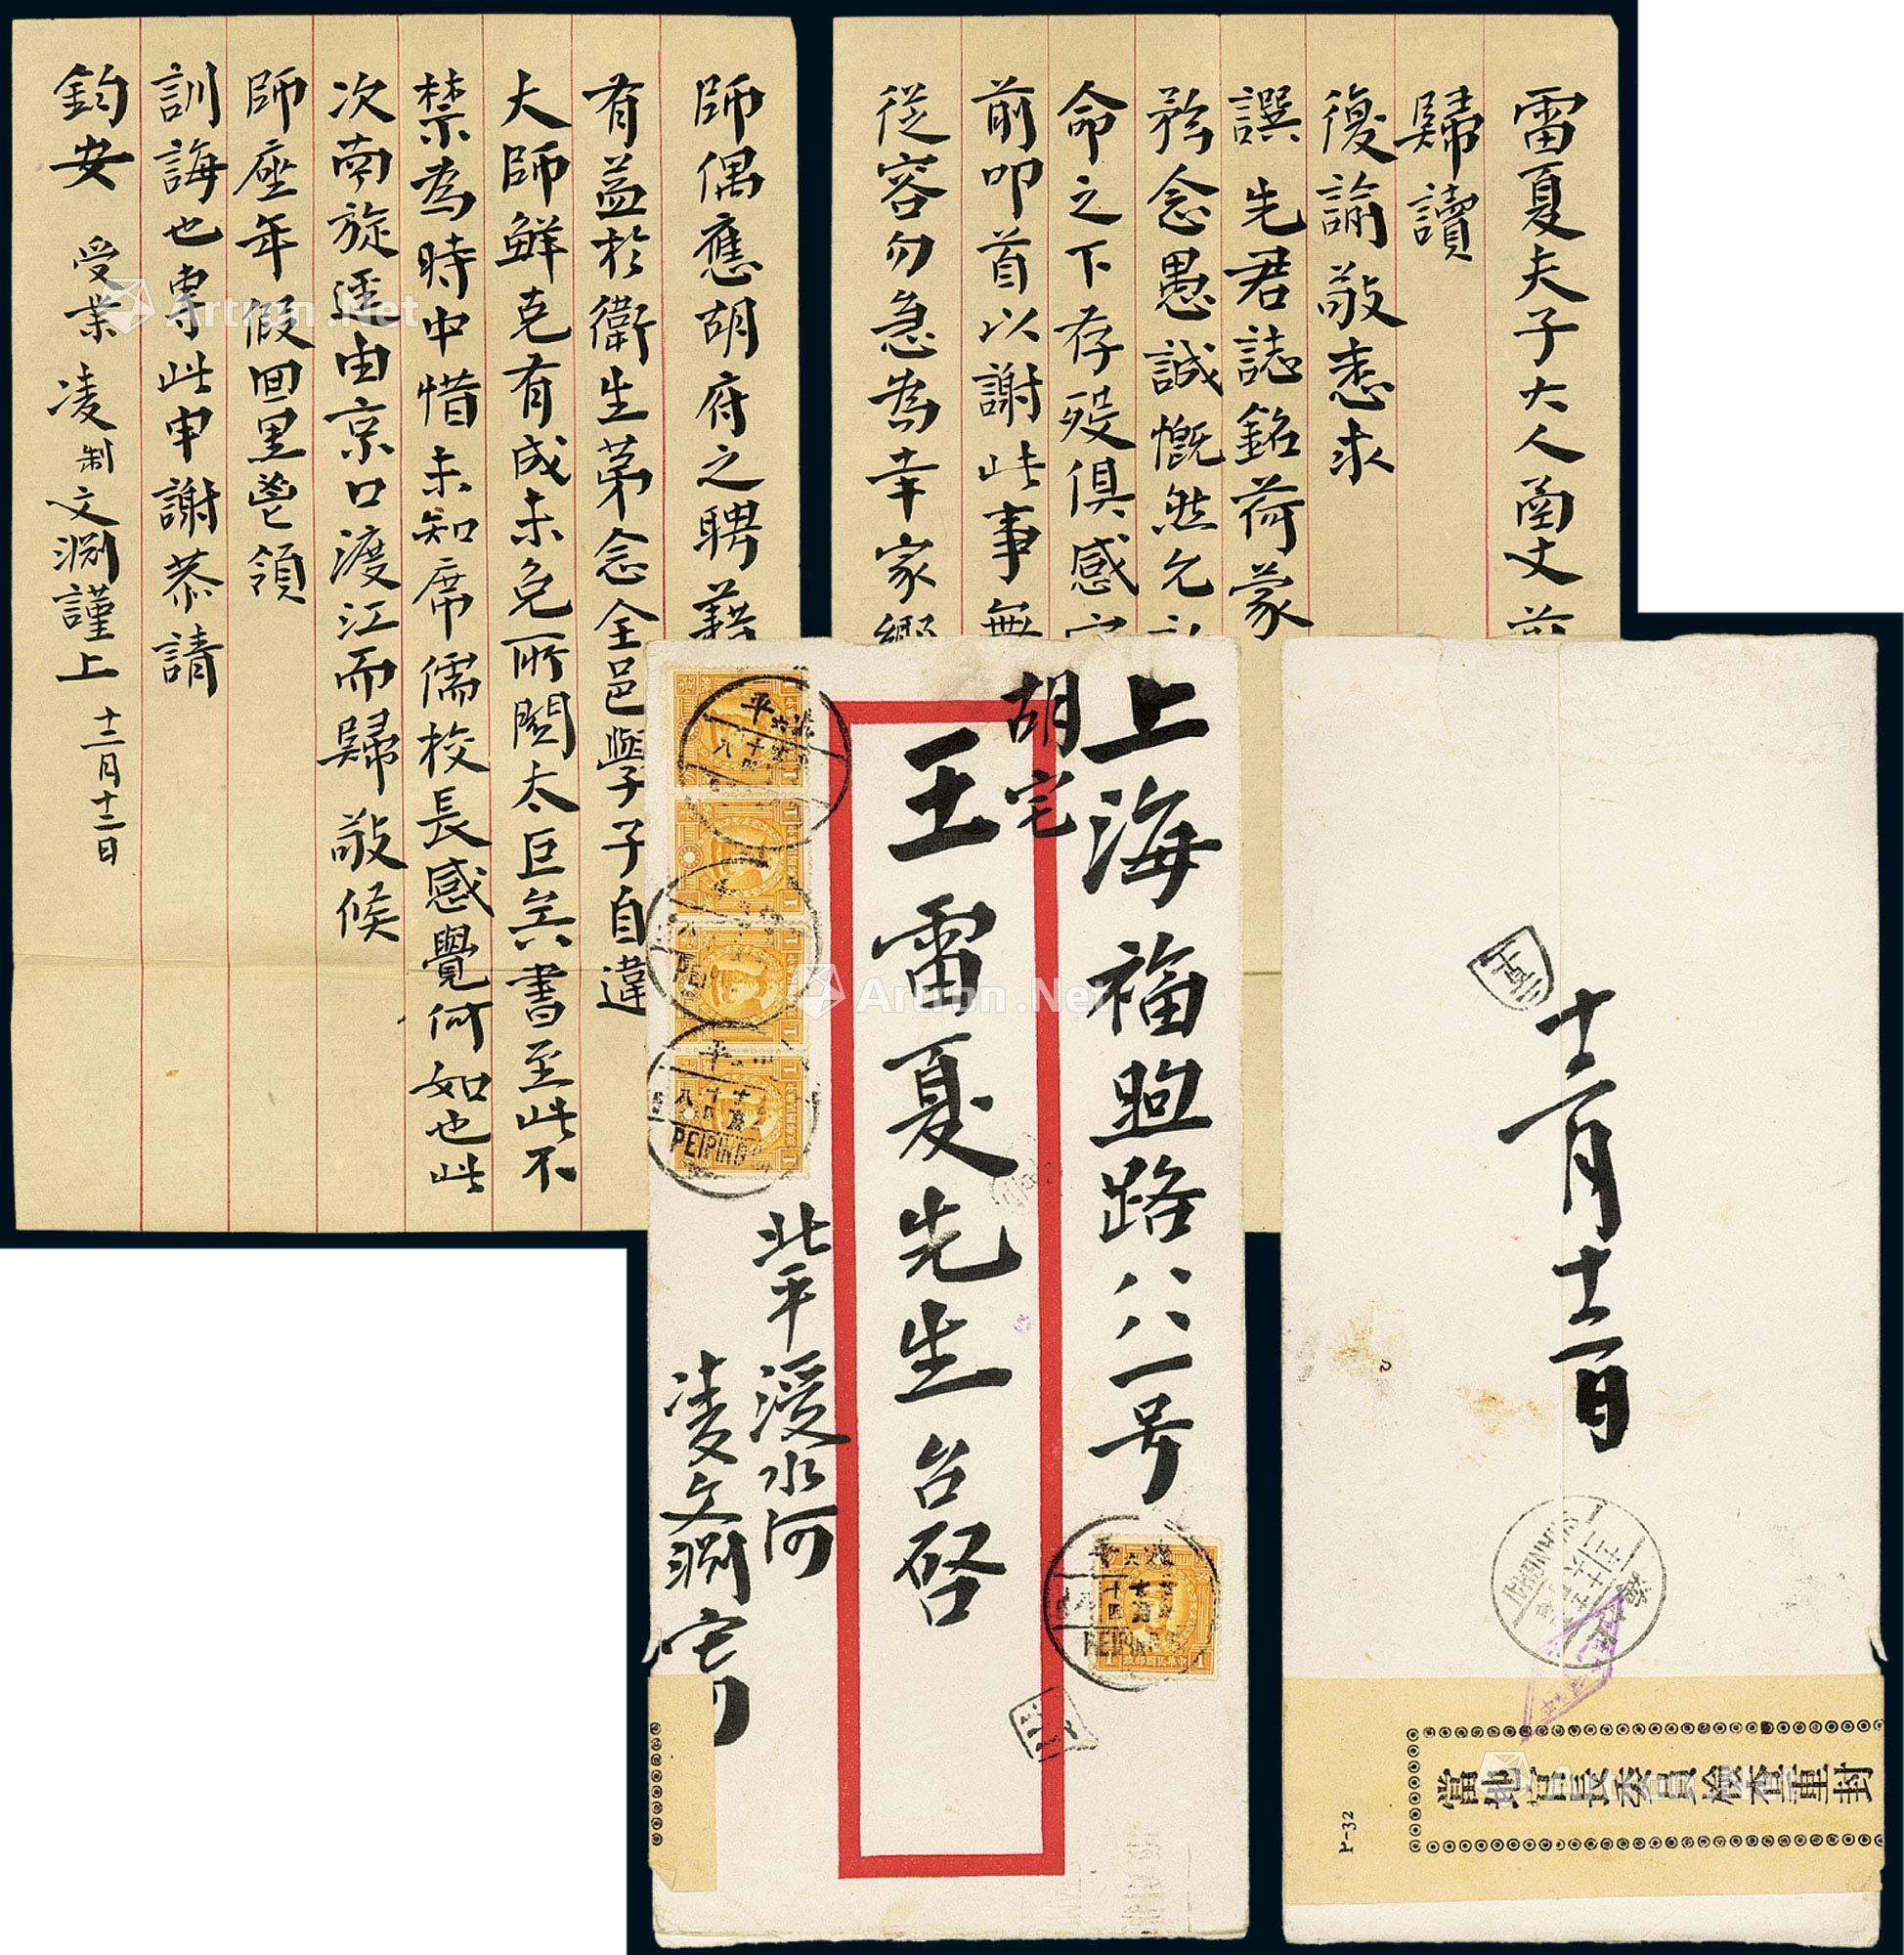 雷夏夫子大人函丈
歸讀
復諭敬悉求
譔先君誌銘荷蒙
矜念愚誠慨然允
命之下存歿俱感
前叩首以謝此事無
從容勿急為幸家鄉
師偶應胡府之聘藉
有益於衛生第念全邑學子自違
大師鮮克有成未免所闕太巨矣書至此不
禁為時中惜未知席儒校長感覺何如也此
次南旋逕由京口渡江而歸敬候
師座年假回里鬯領
訓誨也專此申謝恭請
鈞安 受業凌制文淵謹上 十二月十二日
上海福煦路八八一号
胡宅
王雷夏先生台啓
北平浸水河
凌文淵宅
PEIPING
PEIPING
十二月十二日
SHANGHAI
當地官長委員檢查重封
P-32
Artron.Net
Artron.Net